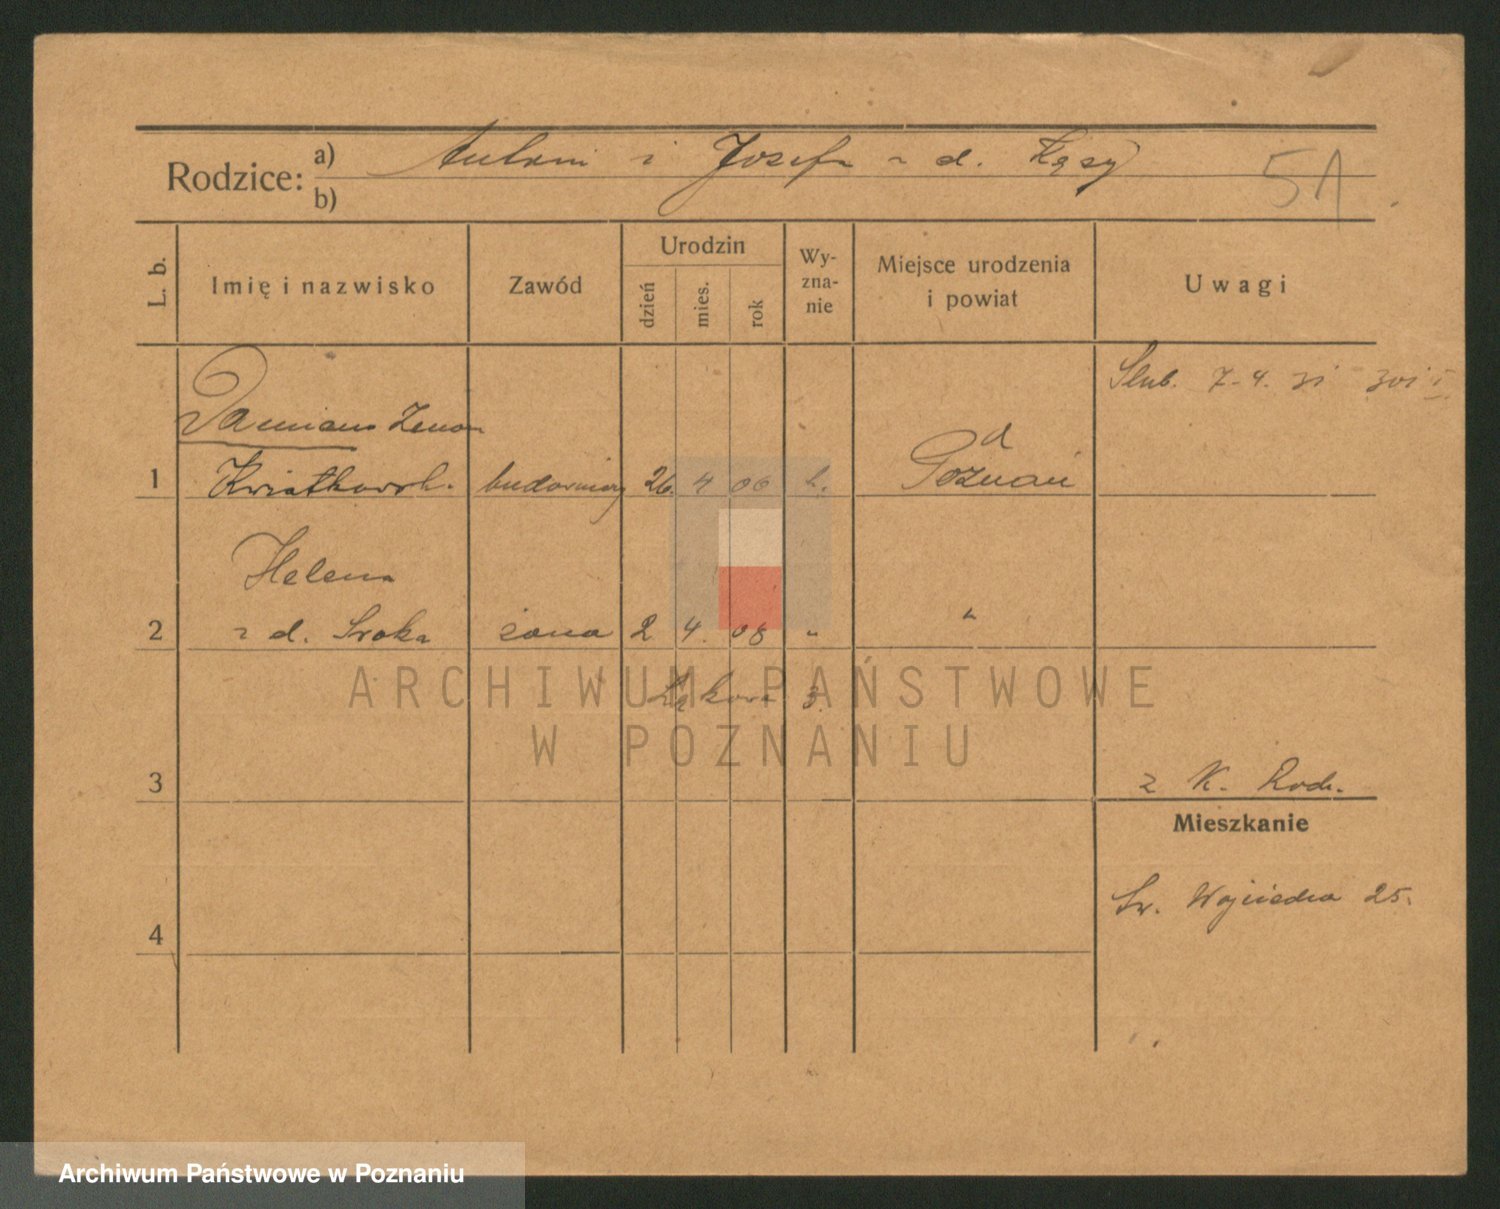 Rodzice: a) Antoni i Josefa z d. Łąsy
b)
51
L. b. Imię i nazwisko Zawód Urodzin dzień mies. rok Wy-zna-nie Miejsce urodzenia i powiat Uwagi
Ślub. 7-4. 31
Damian Zenon
1 Kwiatkowsk. budowniczy 26. 4 06 k. Poznań
Helena
2 z d. Sroka żona 2 4. 08 " "
ARCHIWUM PAŃSTWOWE
Łąkowa 3.
W POZNANIU
3 z K. Rodz.
Mieszkanie
Św. Wojciecha 25.
4
Archiwum Państwowe w Poznaniu